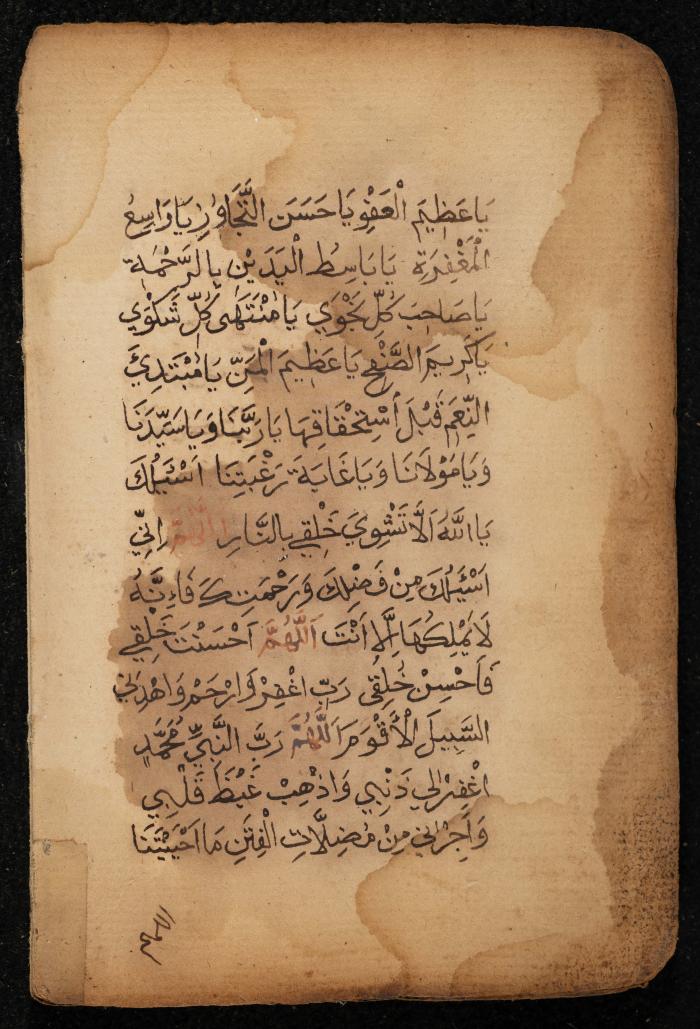 يَا عَظِيمَ الْعَفْوِ يَا حَسَنَ التَّجَاوُزِ يَا وَاسِعَ
الْمَغْفِرَةِ يَا بَاسِطَ الْيَدَيْنِ بِالرَّحْمَةِ
يَا صَاحِبَ كُلِّ نَجْوَي يَا مُنْتَهَى كُلِّ شَكْوَي
يَا كَرِيمَ الصَّفْحِ يَا عَظِيمَ الْمَنِّ يَا مُبْتَدِئَ
النِّعَمِ قَبْلَ اسْتِحْقَاقِهَا يَا رَبَّنَا وَيَا سَيِّدَنَا
وَيَا مَوْلَانَا وَيَا غَايَةَ رَغْبَتِنَا اَسْئَلُكَ
يَا اللَّهُ اَلَّا تَشْوِيَ خَلْقِي بِالنَّارِ اَللَّهُمَّ اِنِّي
اَسْئَلُكَ مِنْ فَضْلِكَ وَرَحْمَتِكَ فَاِنَّهُ
لَا يَمْلِكُهَا اِلَّا اَنْتَ اَللَّهُمَّ اَحْسَنْتَ خَلْقِي
فَاَحْسِنْ خُلُقِي رَبِّ اغْفِرْ وَارْحَمْ وَاهْدِنِي
السَّبِيلَ الْأَقْوَمَ اَللَّهُمَّ رَبَّ النَّبِيِّ مُحَمَّدٍ
اغْفِرْ لِي ذَنْبِي وَاذْهِبْ غَيْظَ قَلْبِي
وَاَجِرْنِي مِنْ مُضِلَّاتِ الْفِتَنِ مَا اَحْيَيْتَنَا
اللهم